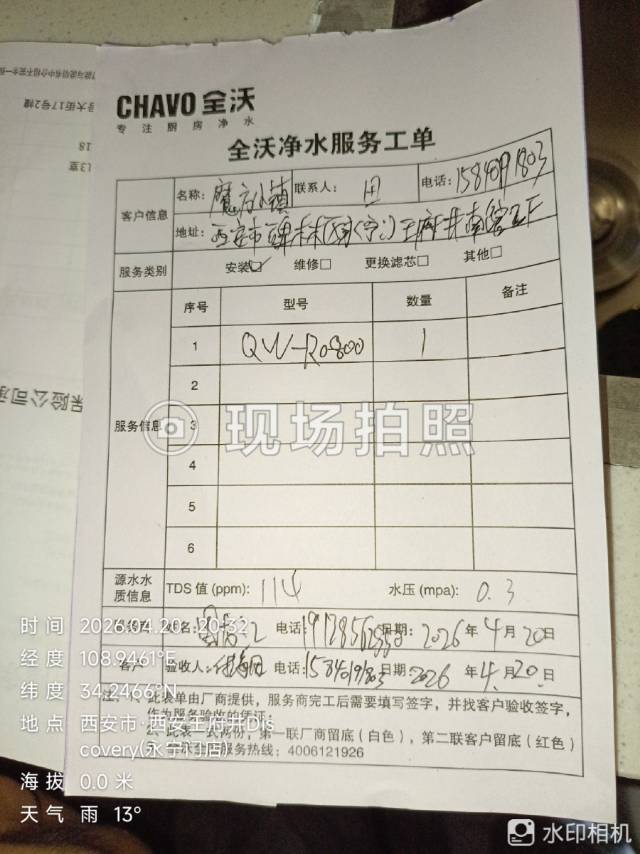 CHAVO 全沃
专注厨房净水
全沃净水服务工单
客户信息
名称: 魔方小镇 联系人: 田 电话: 15840191803
地址: 西安市碑林区 王府井南馆五F
服务类别 安装☑ 维修□ 更换滤芯□ 其他□
服务信息
序号 型号 数量 备注
1 QW-RO800 1
2
3
4
5
6
源水水质信息 TDS 值 (ppm): 114 水压 (mpa): 0.3
姓名: 电话: 日期: 2026 年 4 月 20 日
客户 验收人: 电话: 15840191803 日期: 2026 年 4 月 20 日
注: 1、此表单由厂商提供，服务商完工后需要填写签字，并找客户验收签字，
作为服务验收的
2、此表一式两份，第一联厂商留底（白色），第二联客户留底（红色）
服务热线: 4006121926
现场拍照
时间 2026.04.20 20:20:32
经度 108.9461°E
纬度 34.2466°N
地点 西安市·西安王府井Dis
covery(永宁门店)
海拔 0.0 米
天气 雨 13°
水印相机
大街17号2幢
18
保险公司